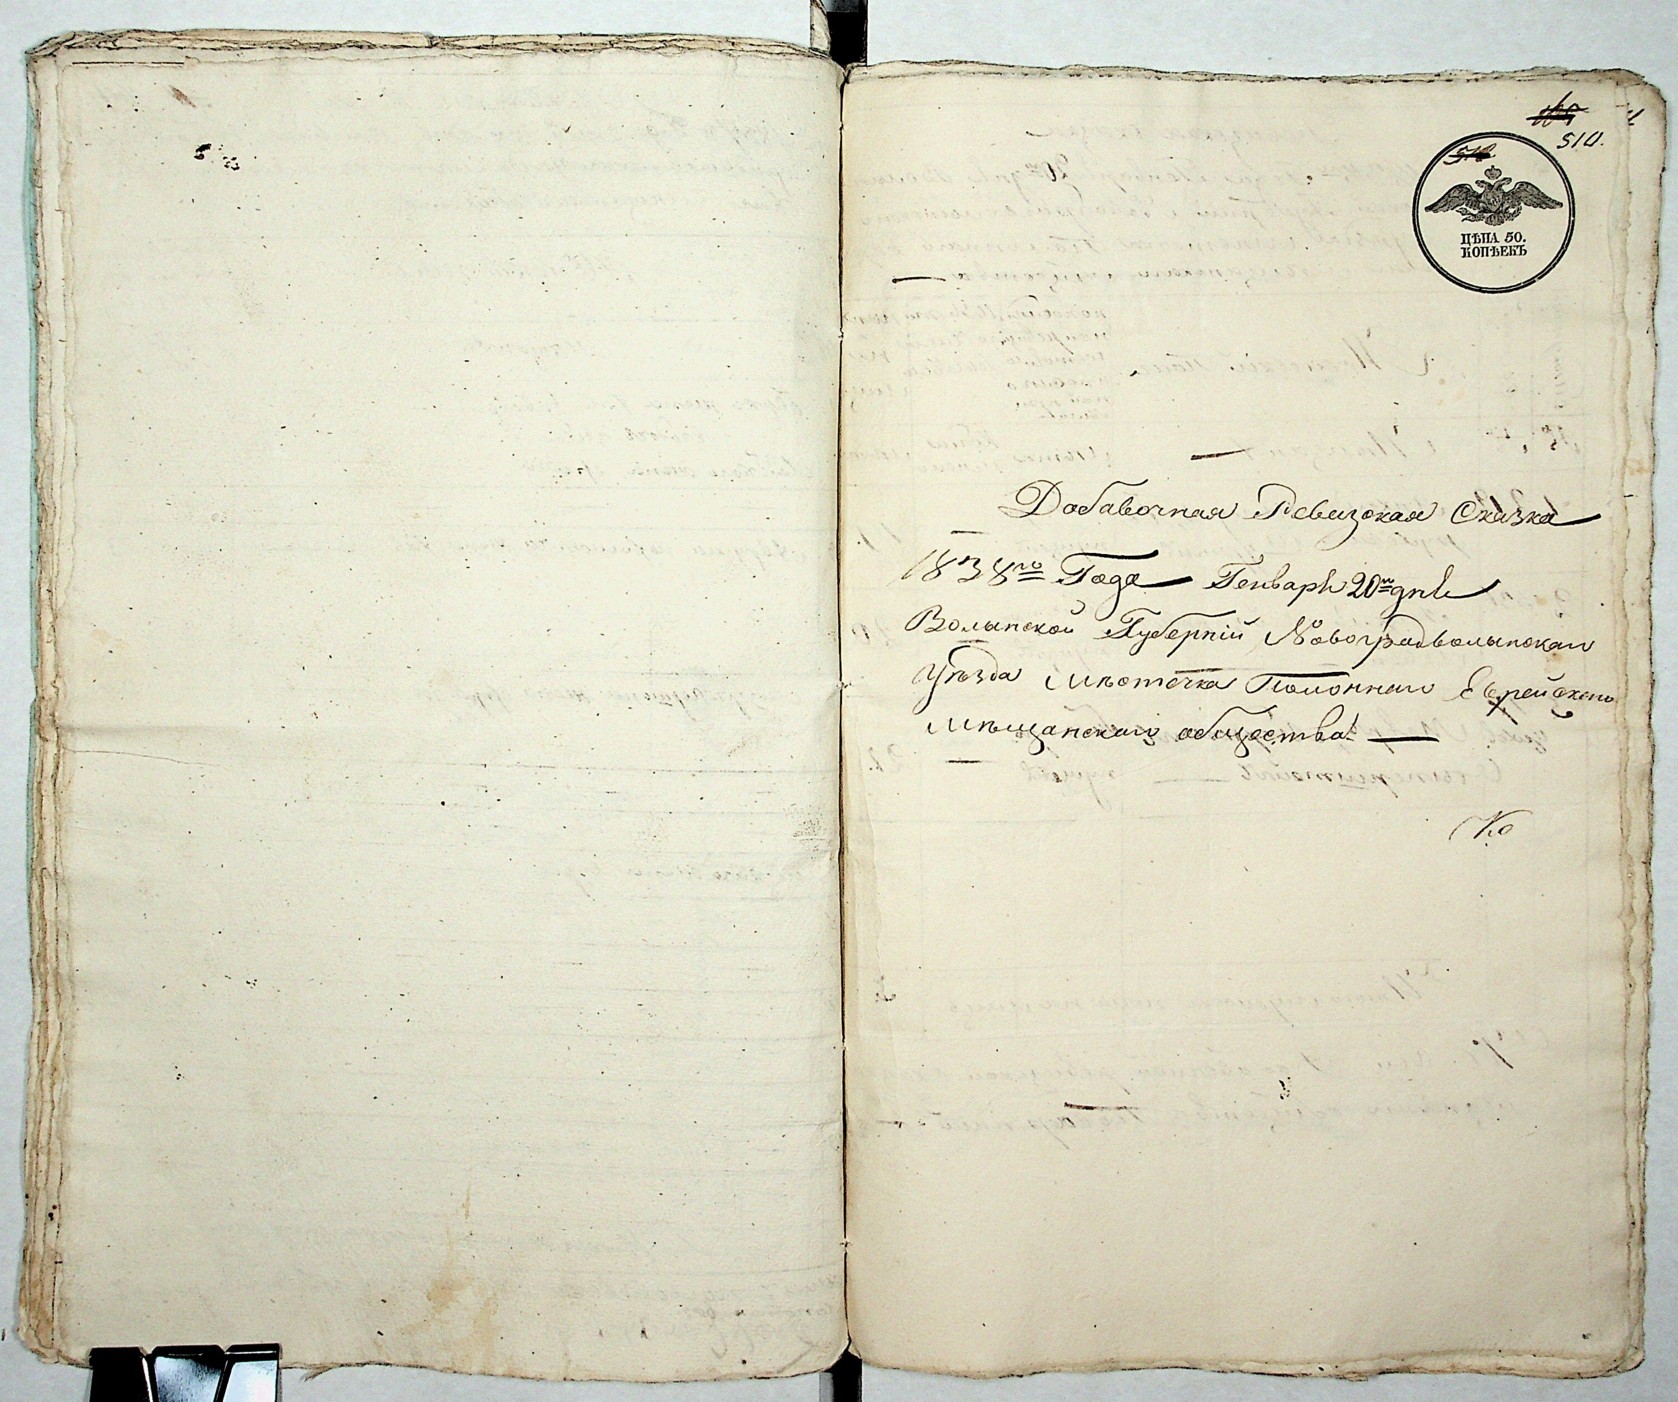 510.
ЦѢНА 50.
КОПѢЕКЪ
Добавочная Ревизская Сказка
1838го Года Генваря 20го дня
Волынской Губерніи Новоградволынскаго
уѣзда мѣстечка Полоннаго Еврейскаго
мѣщанскаго общества